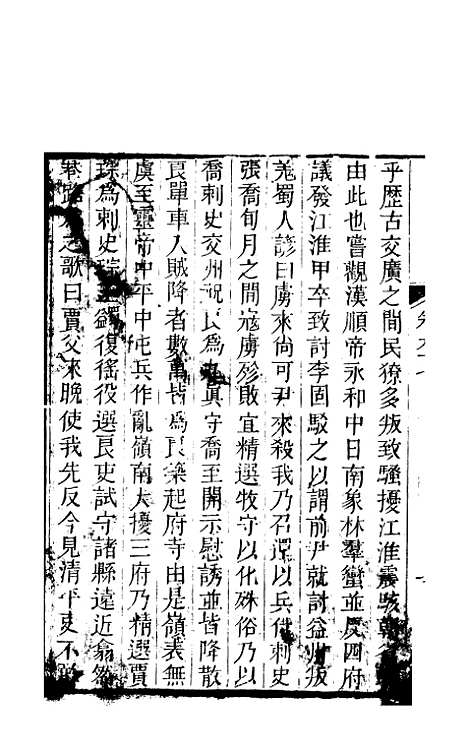 乎歷古交廣之間民獠多叛致騷擾江淮震駭
由此也嘗觀漢順帝永和中日南象林羣蠻並反四府
議發江淮甲卒致討李固駁之以謂前尹就討益州叛
羌蜀人諺曰虜來尚可尹來殺我乃召還以兵付刺史
張喬旬月之間寇虜殄敗宜精選牧守以化殊俗乃以
喬刺史交州祝良為九真守喬至開示慰誘並皆降散
良單車入賊降者數萬皆為良築起府寺由是嶺表無
虞至靈帝中平中屯兵作亂嶺南大擾三府乃精選賈
琮為刺史琮至蠲復徭役選良吏試守諸縣遠近翕然
巷路為之歌曰賈父來晚使我先反今見清平吏不